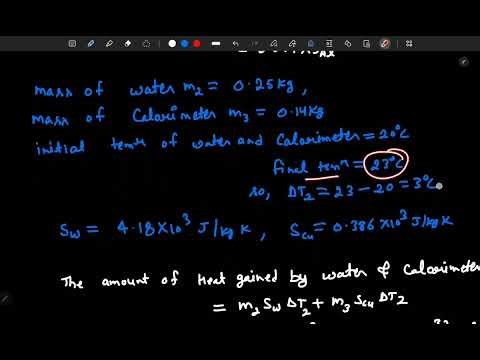 mass of water m₂ = 0.25 kg,
mass of Calorimeter m₃ = 0.14 kg
initial temⁿ of water and Calorimeter = 20°C
final temⁿ = 23°C
so, ΔT₂ = 23 − 20 = 3°C
S_w = 4.18×10³ J/kg K, S_cu = 0.386×10³ J/kg K
The amount of Heat gained by water & Calorimeter
= m₂ S_w ΔT₂ + m₃ S_cu ΔT₂